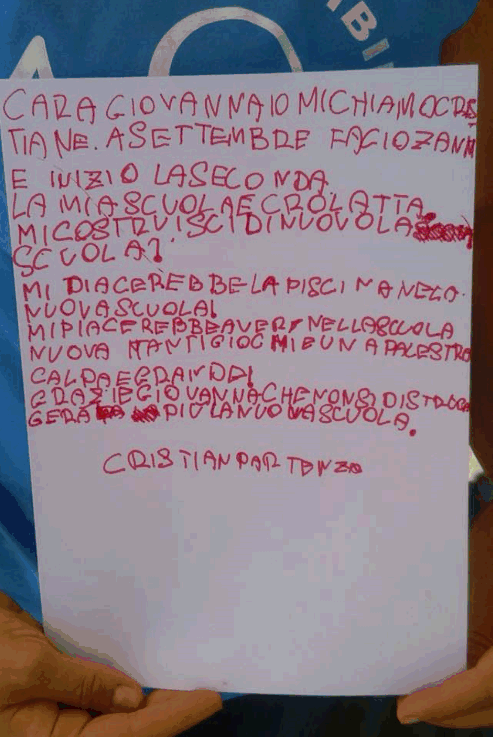 ABI
CARA GIOVANNA IO MI CHIAMO CRIS
TIANE. A SETTEMBRE FACIO 7 ANN
E INIZIO LA SECONDA
LA MIA SCUOLA E CROLATTA.
MI COSTRUISCI DI NUOVO LA
SCUOLA?
MI PIACEREBBE LA PISCINA NELLA
NUOVA SCUOLA!
MI PIACEREBBE AVERE NELLA SCUOLA
NUOVA TANTI GIOCHI E UNA PALESTRA
CALDA E GRANDE!
GRAZIE GIOVANNA CHE NON SI DISTRUG
GERÀ PIÙ LA NUOVA SCUOLA.
CRISTIAN